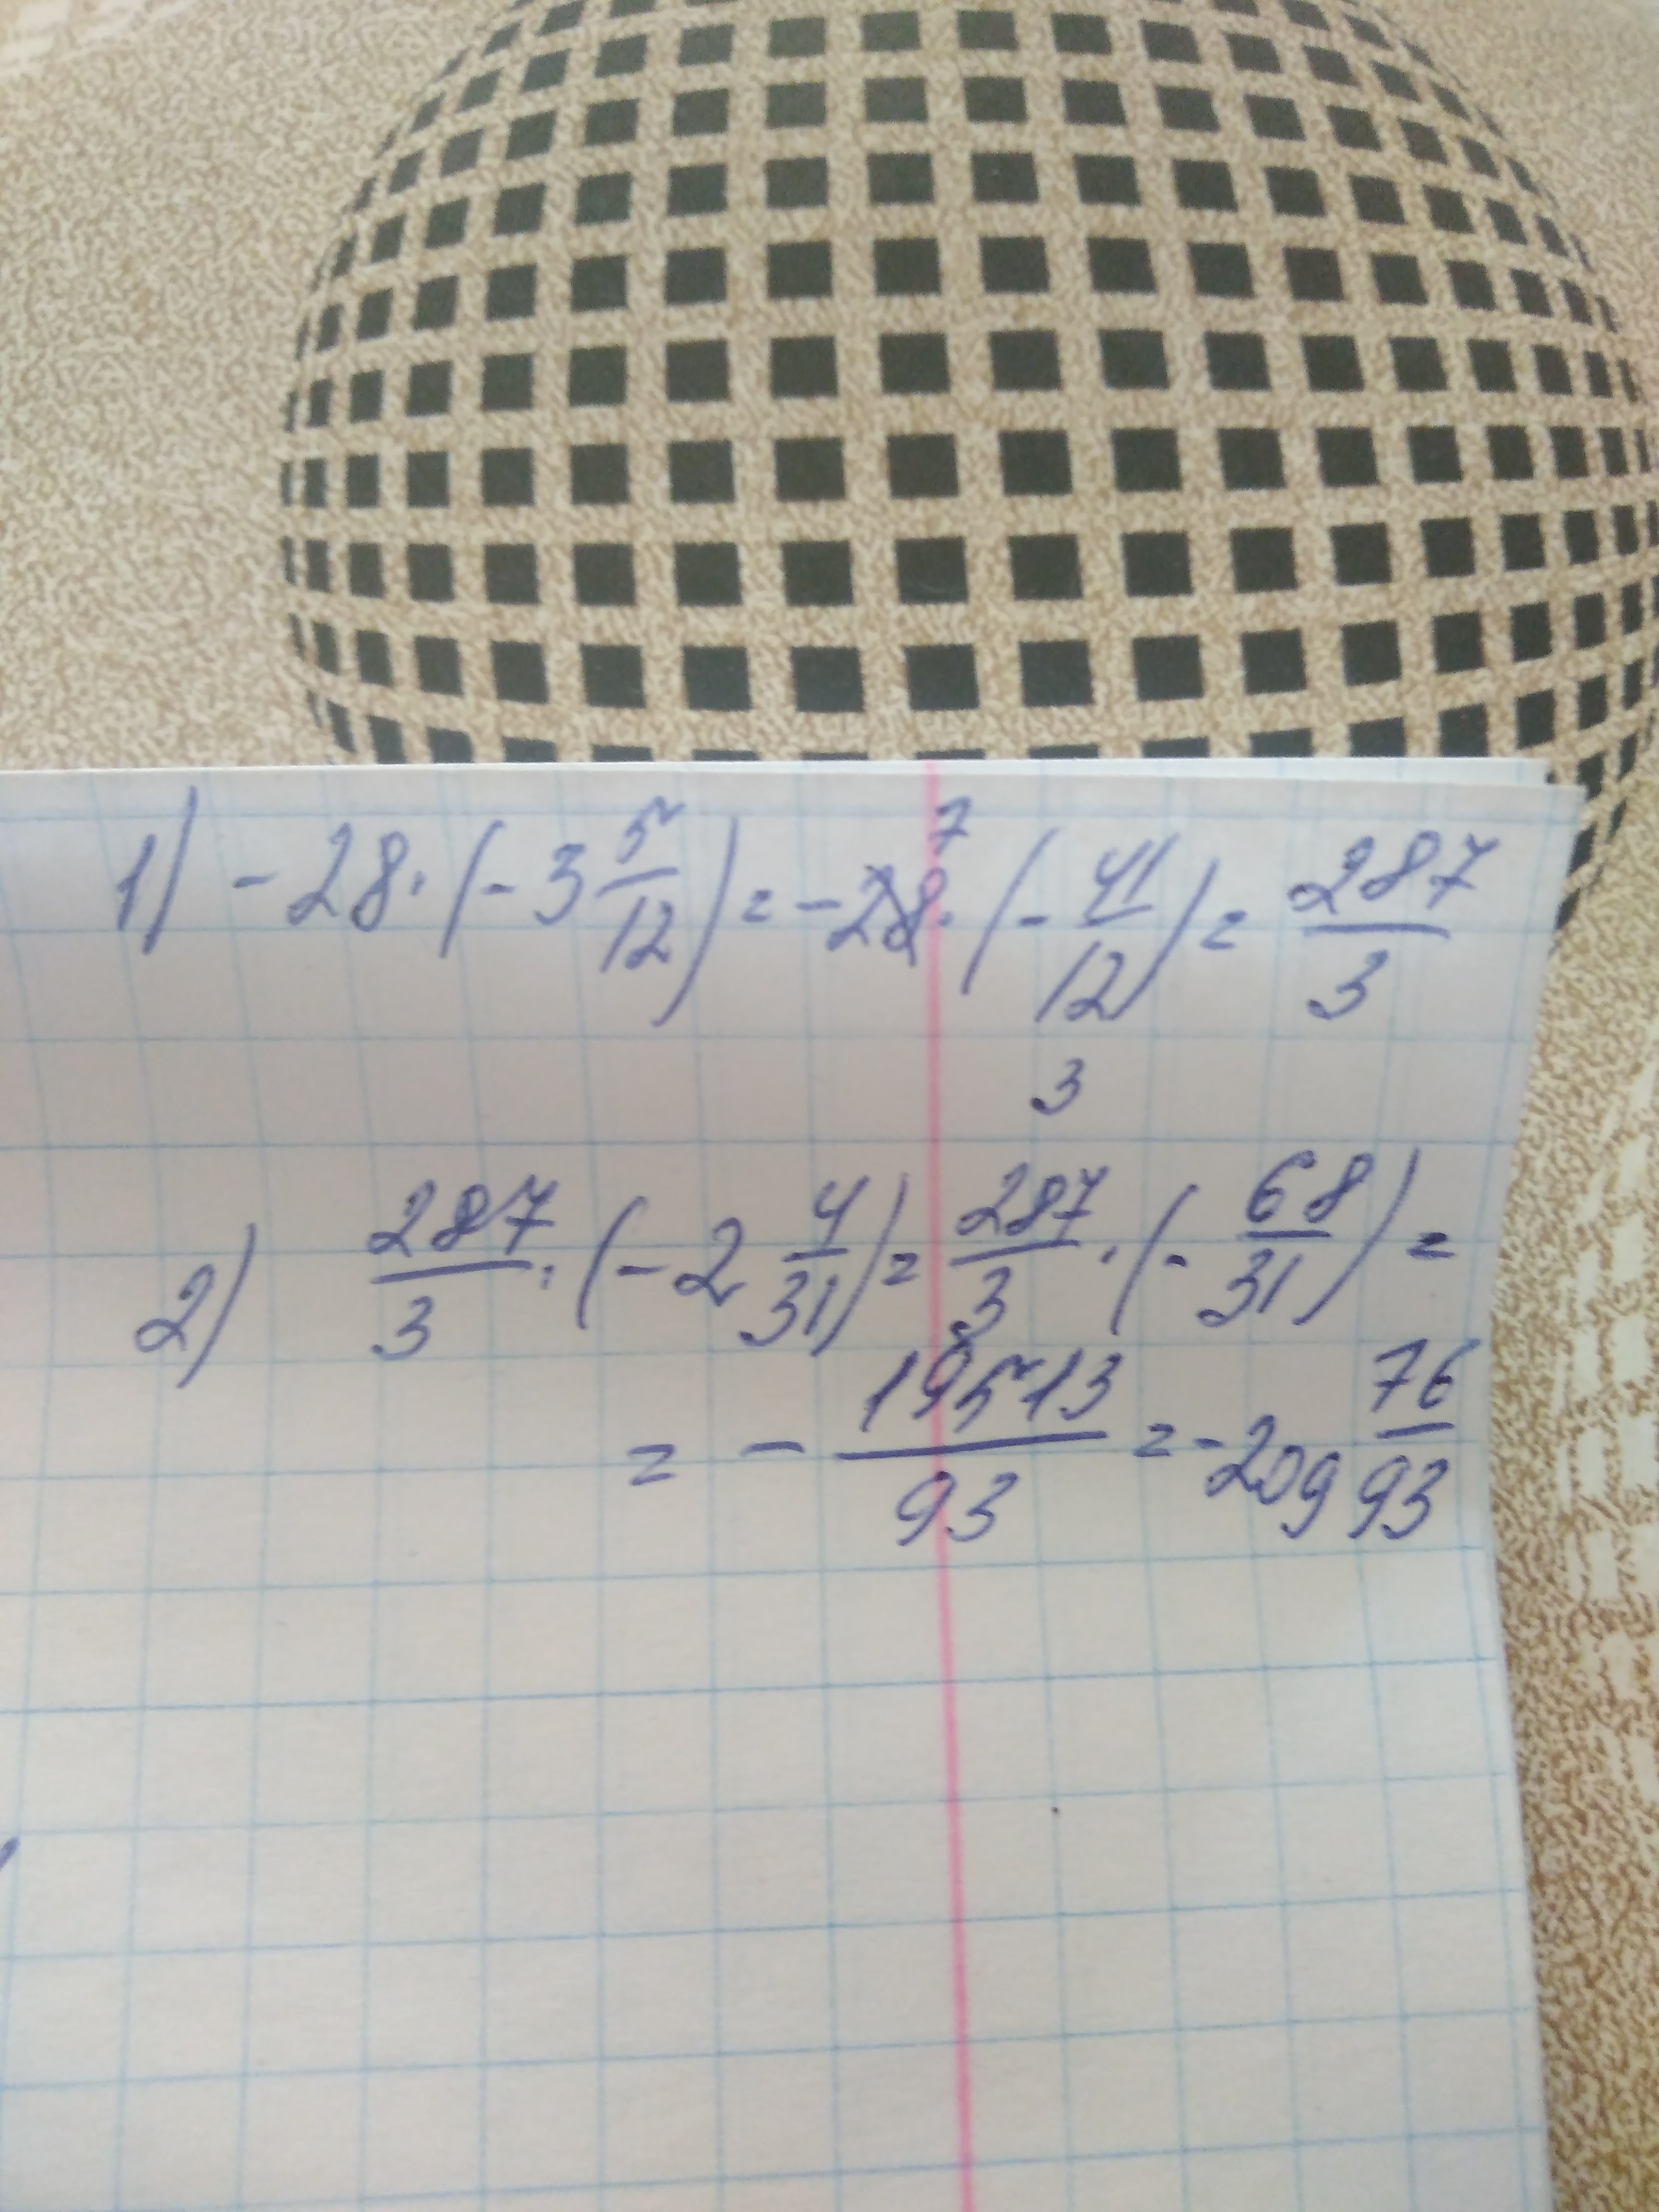 1) -28·(-3 5/12) = -28·(-41/12) = 287/3
7
3
2) 287/3·(-2 4/31) = 287/3·(-68/31) =
= -19513/93 = -209 76/93